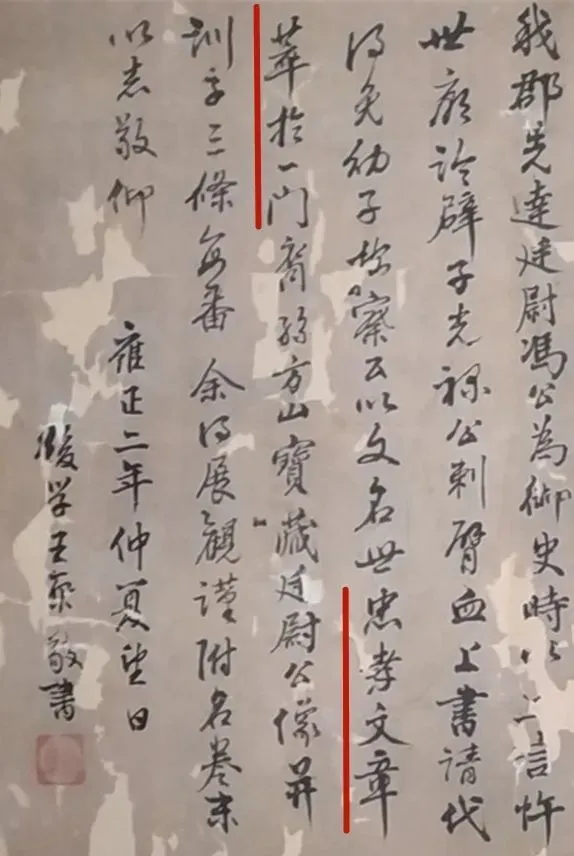 我郡先達廷尉馮公為御史時以上言忤
世廟論辟子光祿公刺臂血上書請代
得免幼子按察公以文名世忠孝文章
萃於一門裔孫方山寶藏廷尉公像并
訓子三條每番余得展觀謹附名卷末
以志敬仰
雍正二年仲夏望日
後学王奕敬書